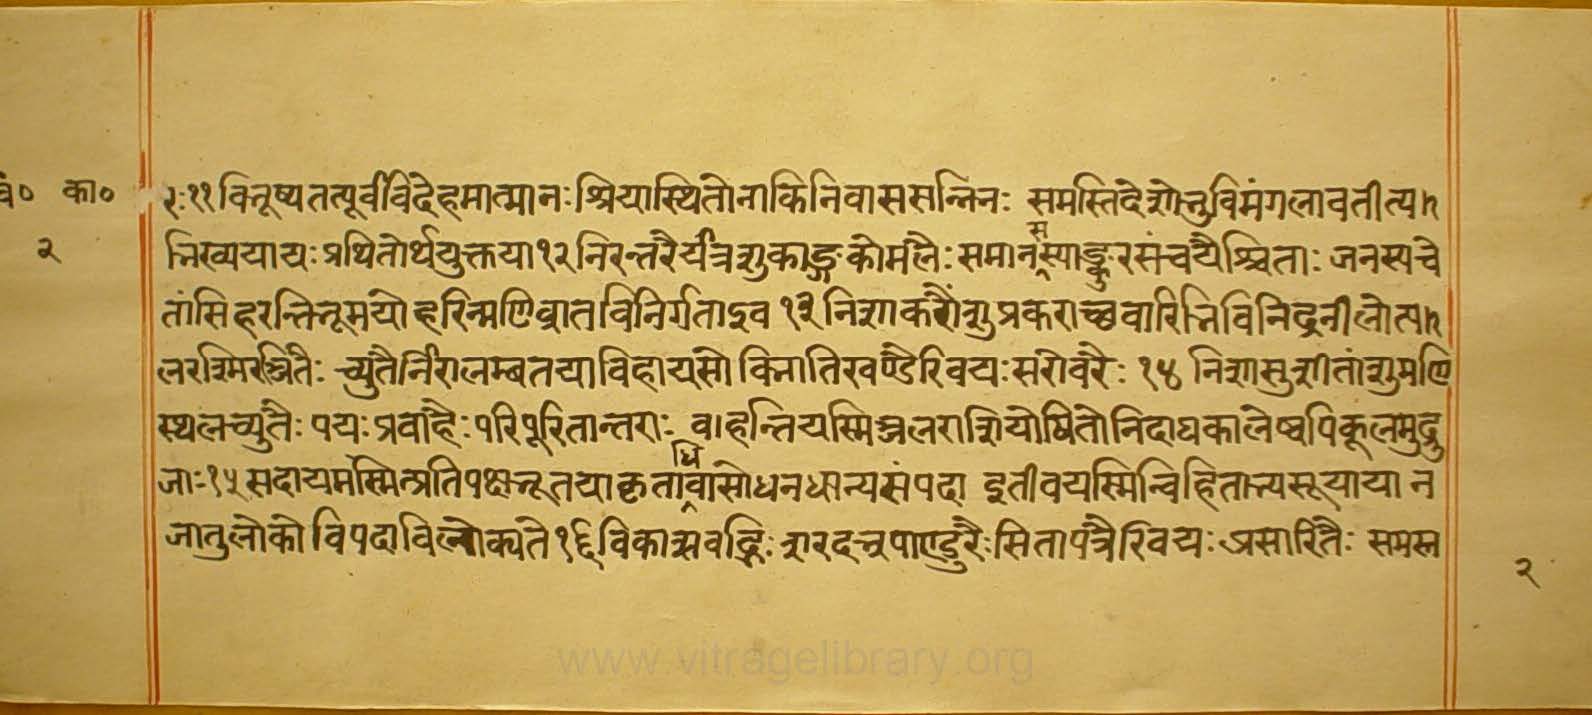 चं० का० रः ११ विभूष्य तत्पूर्वविदेहमात्मानः श्रियास्थितोनाकिनिवाससन्निनः समस्तिदेशोभुविमंगलावतीत्य
२ भिख्ययायः प्रथितोर्थयुक्तया १२ निरन्तरैर्यत्रशुकाङ्गकोमलैः समानसस्याङ्कुरसंचयैश्चिताः जनस्यचे
तांसिहरन्तिभूमयोहरिन्मणिव्रातविनिर्गताइव १३ निशाकरांशुप्रकराच्छवारिभिविनिद्रनीलोत्प
लरश्मिरञ्जितैः च्युतैर्निरालम्बतयाविहायसोविभातिखण्डैरिवयः सरोवरैः १४ निशासुशीतांशुमणि
स्थलच्युतैः पयः प्रवाहैः परिपूरितान्तराः वाहन्तियस्मिञ्जलराशियोषितोनिदाघकालेष्वपिकूलमुद्रु
जाः १५ सदायमस्मिन्प्रतिपक्षभूतयाकृताधिवासोधनधान्यसंपदा इतीवयस्मिन्विहिताभ्यसूयाया न
जातुलोको विपदाविलोक्यते १६ विकासवद्भिः शरदभ्रपाण्डुरैः सितापत्रैरिवयः प्रसारितैः समस्त
२
www.vitragelibrary.org